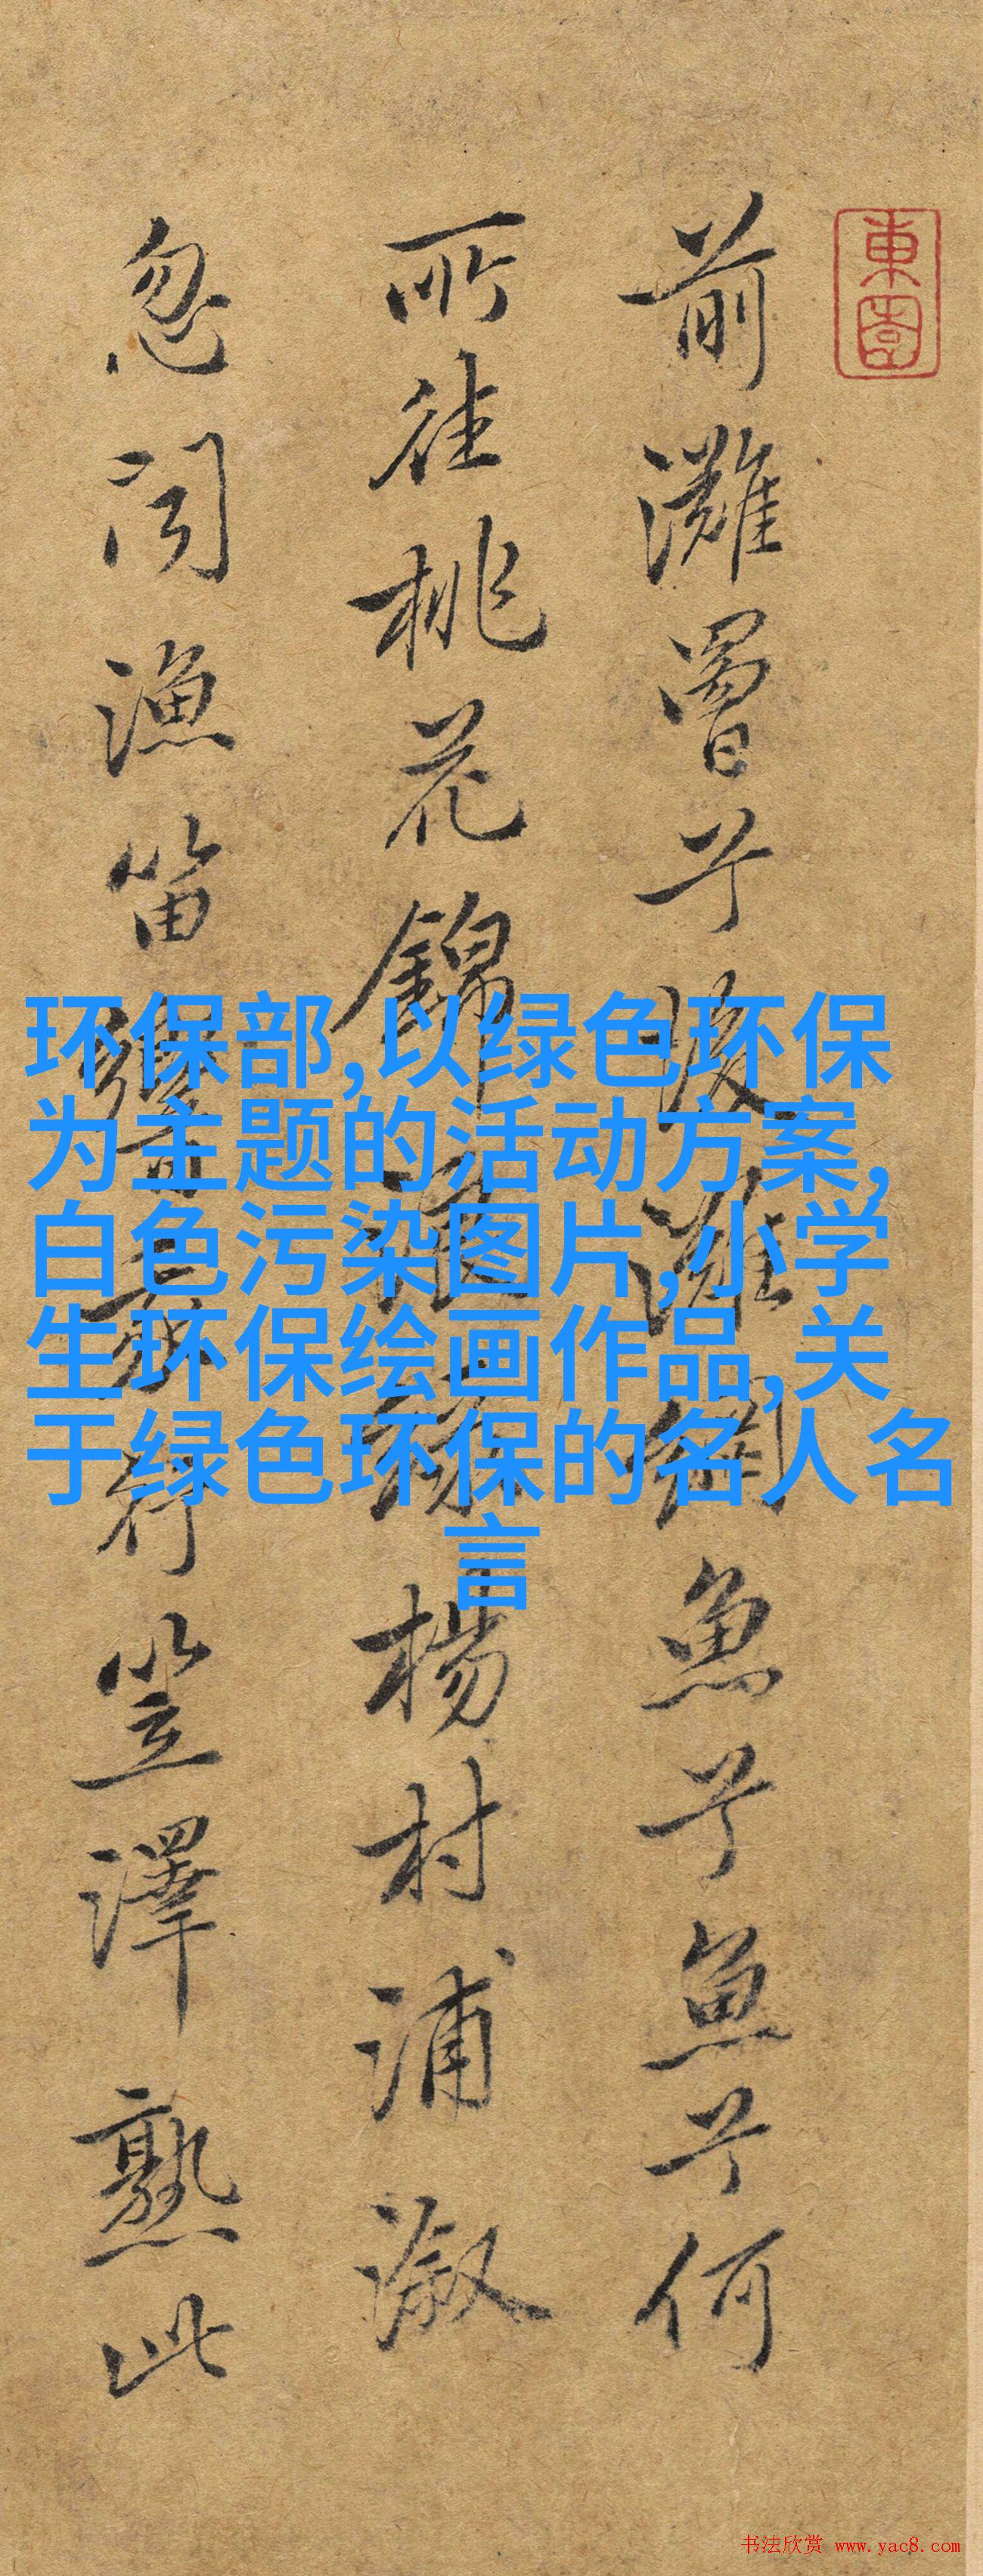 東園
前灘罾兮後灘網魚兮魚兮何
所往桃花錦浪綠楊村浦溆
忽聞漁笛響我行笠澤熟此
环保部,以绿色环保
为主题的活动方案,
白色污染图片,小学
生环保绘画作品,关
于绿色环保的名人名
言
书法欣赏 www.yac8.com